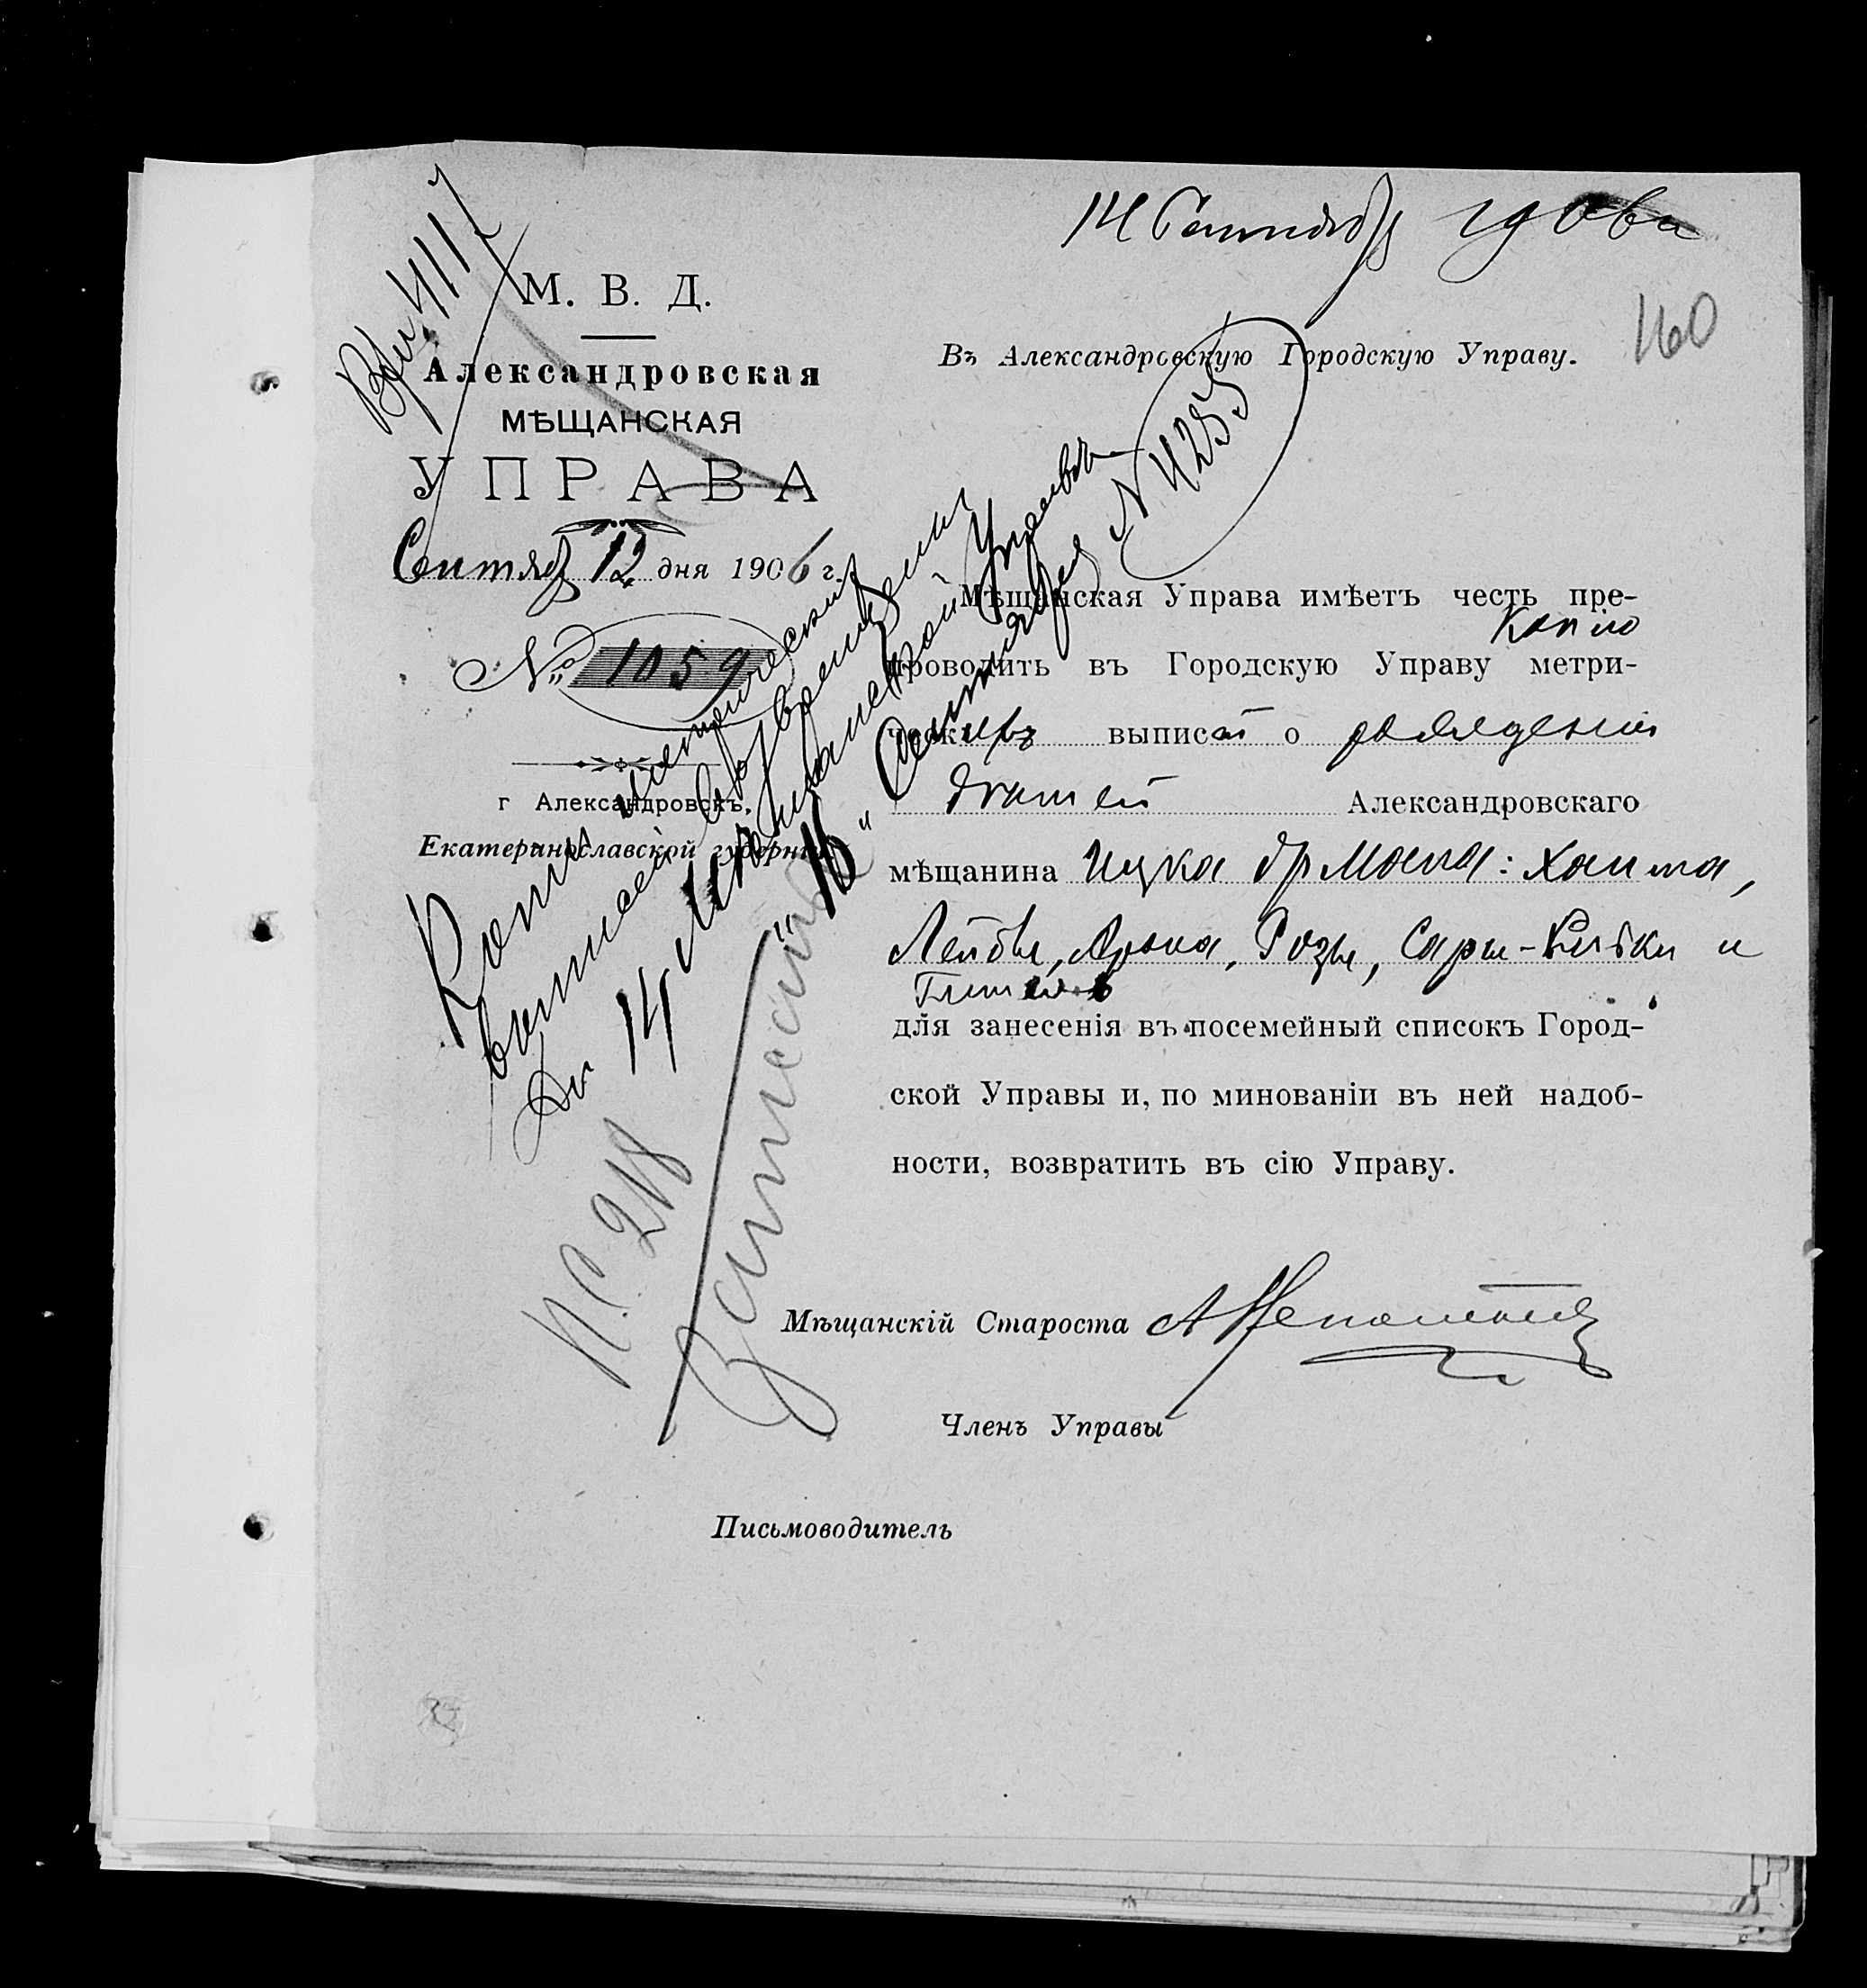 14 Сентябр
160
Вх. 4117
М. В. Д.
Александровская
МѢЩАНСКАЯ
УПРАВА
Сентяб 12 дня 1906 г.
№ 1059
г Александровскъ,
Екатеринославской губерніи
Въ Александровскую Городскую Управу.
Мѣщанская Управа имѣетъ честь пре-
Копію
проводить въ Городскую Управу метри-
выпис о рожденіи
дѣтей Александровскаго
мѣщанина Ицка Хаима,
Лейбы, Арона, Розы, Сары-Ривки и
для занесенія въ посемейный списокъ Город-
ской Управы и, по минованіи въ ней надоб-
ности, возвратить въ сію Управу.
Копіи метрическихъ
выписей возвращены
Мѣщанской Управѣ
"16" Сентября № 4255
П.С. 218
Записано
Мѣщанскій Староста
Членъ Управы
Письмоводитель